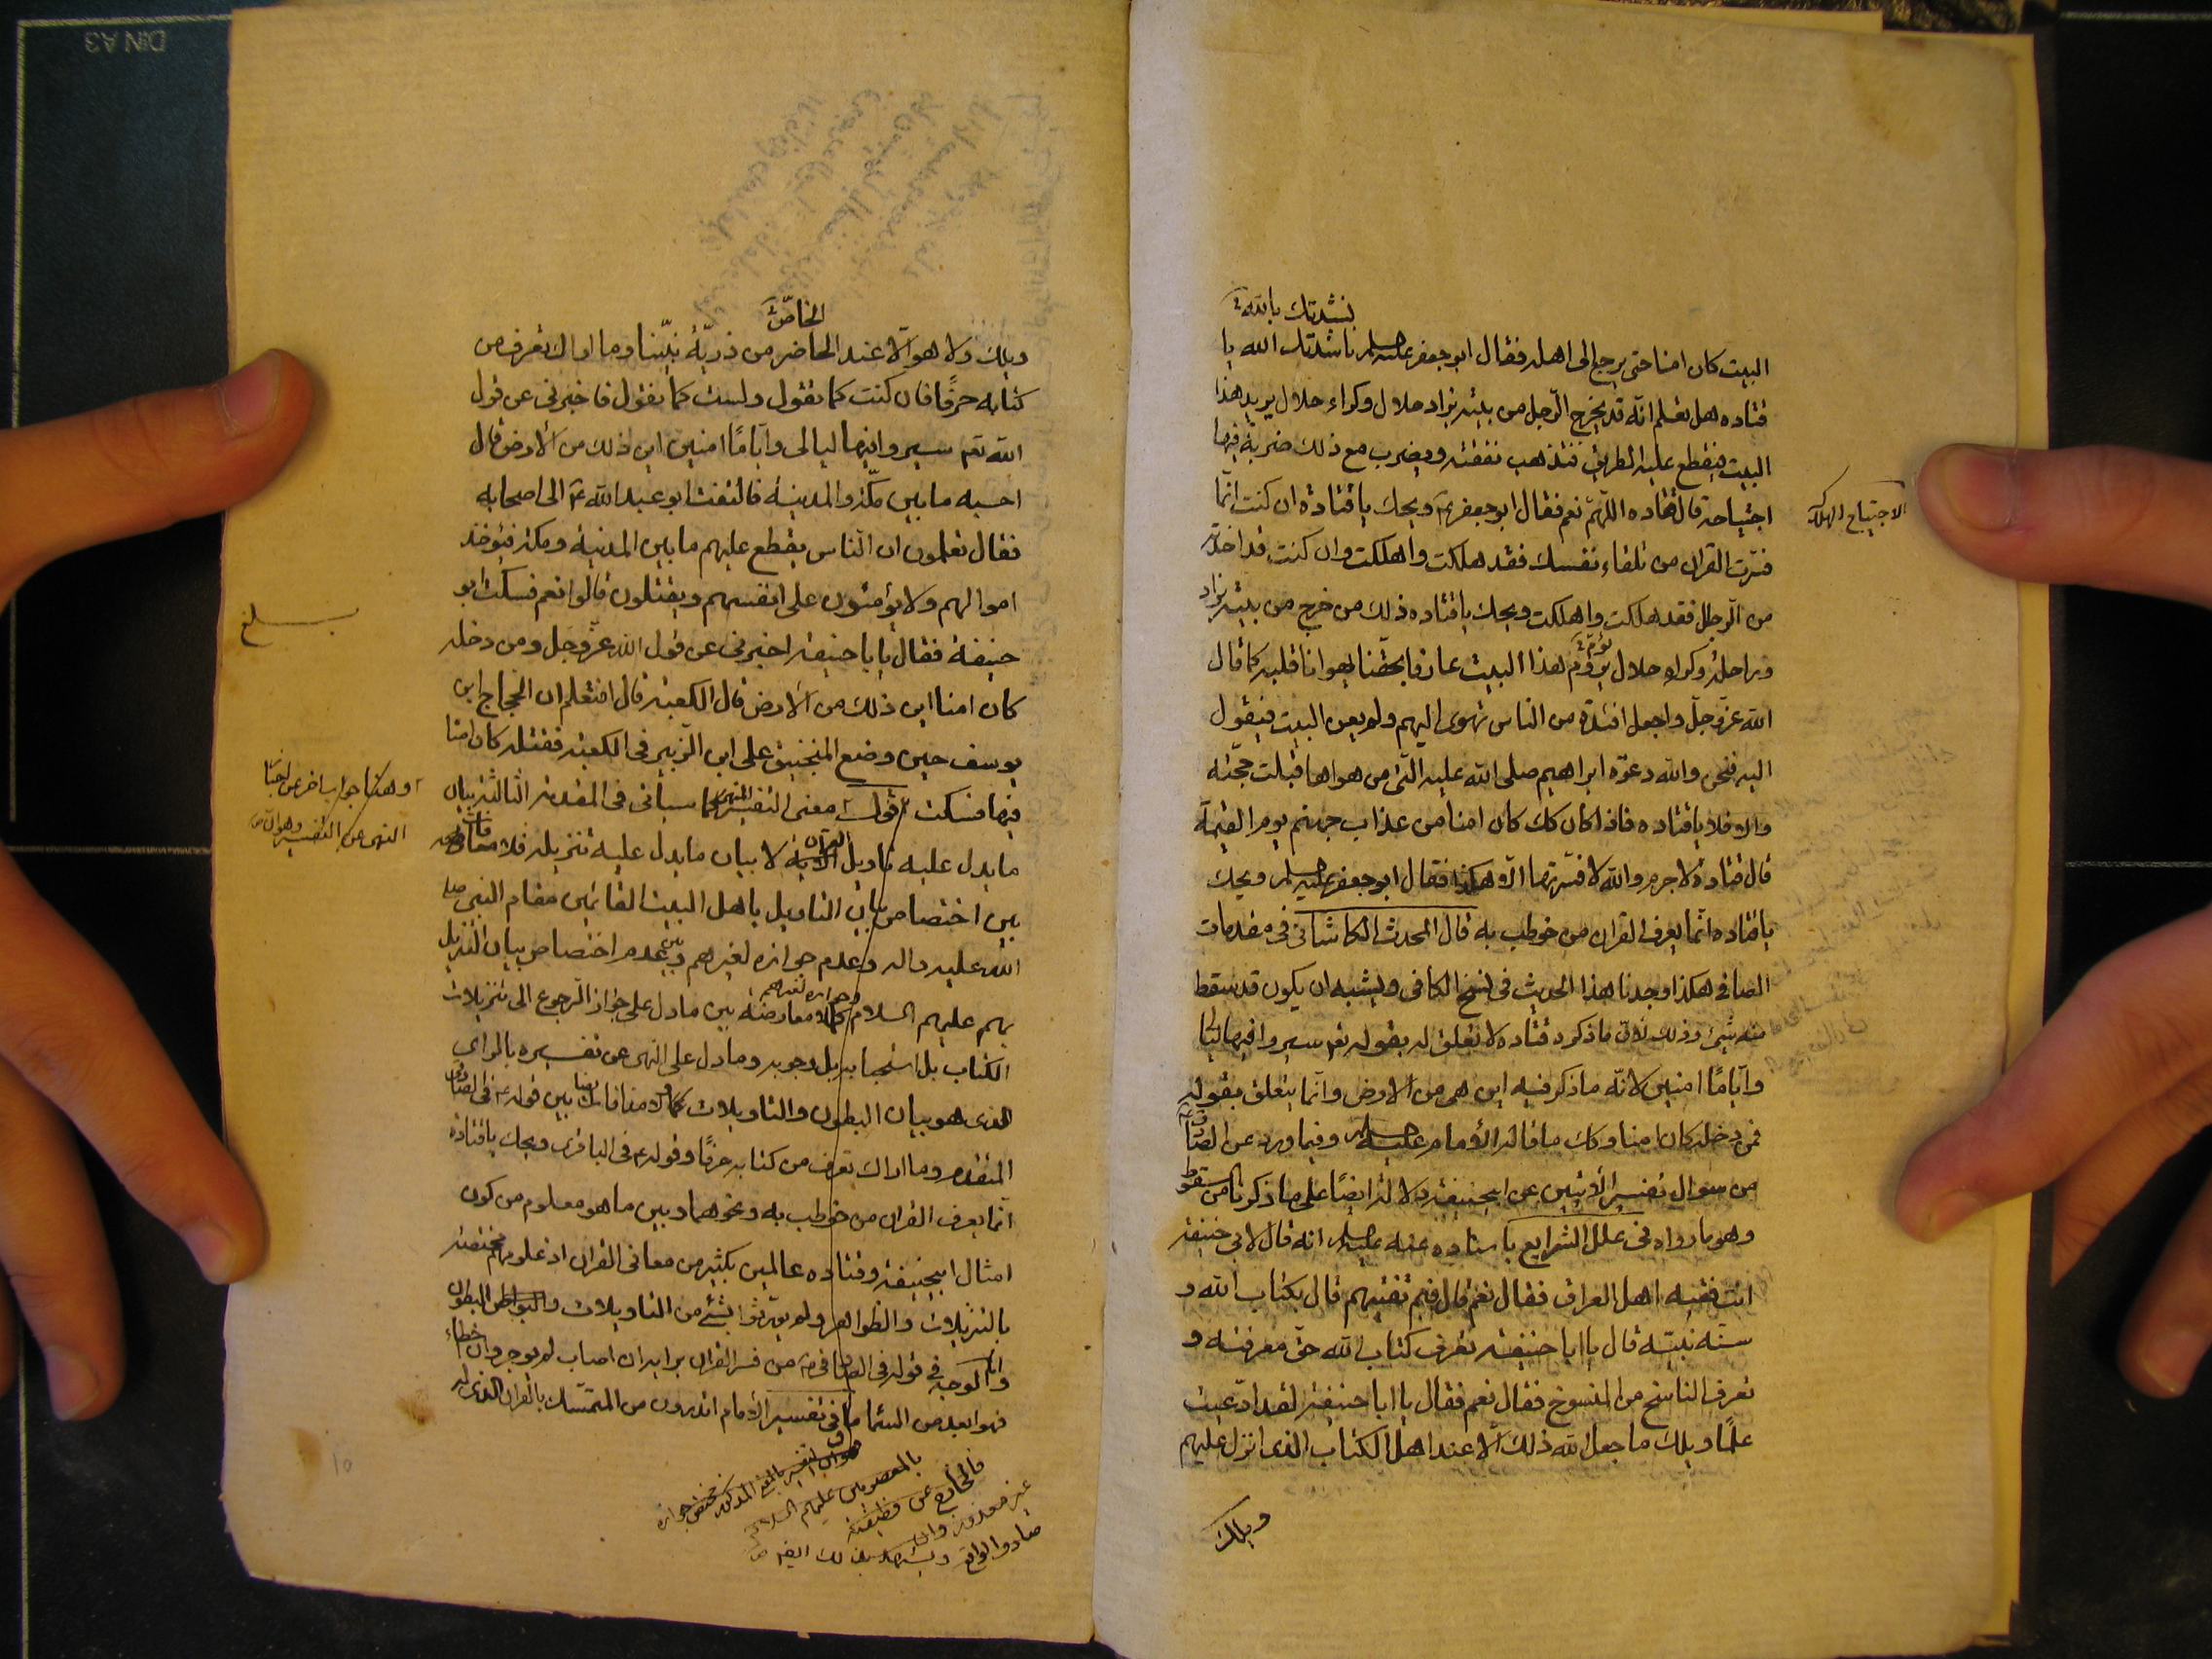 نشدتك بالله
البيت كان امنا حتى يرجع الى اهله فقال ابو جعفر عليه السلم ناشدتك الله يا
قتاده هل تعلم انه قد يخرج الرجل من بيته بزاد حلال وكراء حلال يريد هذا
البيت فيقطع عليه الطريق فتذهب نفقته ويضرب مع ذلك ضربة فيها
اجتياحه قال قتاده اللهم نعم فقال ابو جعفر ع ويحك يا قتادة ان كنت انما
الاجتياح الهلاك
فسرت القران من تلقاء نفسك فقد هلكت واهلكت وان كنت قد اخذته
من الرجال فقد هلكت واهلكت ويحك يا قتاده ذلك من خرج من بيته بزاد
وراحلة وكراء حلال يروم هذا البيت عارفا بحقنا يهوانا قلبه كما قال
الله عز وجل واجعل افئدة من الناس تهوى اليهم ولم يعن البيت فيقول
اليه فنحن والله دعوة ابراهيم صلى الله عليه التى من هواها قبلت حجته
والا فلا يا قتاده فاذا كان كك كان امنا من عذاب جهنم يوم القيمة
قال قتادة لا جرم والله لا فسرتها الا هكذا فقال ابو جعفر عليه السلم ويحك
يا قتاده انما يعرف القران من خوطب به قال المحدث الكاشانى فى مقدمات
الصافى هكذا وجدنا هذا الحديث فى نسخ الكافى ويشبه ان يكون قد سقط
منه شئ وذلك لان ما ذكره قتاده لا تعلق له بقوله تع سيروا فيها ليالى
واياما امنين لانه ما ذكر فيه اين هى من الارض وانما يتعلق بقوله
فمن دخله كان امنا وكك ما قاله الامام عليه السلم وفيما ورد عن الصادق
من سوال تفسير الايتين عن ابيحنيفة دلالة ايضا على ما ذكرنا من السقوط
وهو ما رواه فى علل الشرايع باسناده عنه عليه السلم انه قال لابي حنيفة
انت فقيه اهل العراق فقال نعم قال فبم تفتيهم قال بكتاب الله و
سنة نبيه قال يا ابا حنيفة تعرف كتاب الله حق معرفته و
تعرف الناسخ من المنسوخ فقال نعم فقال يا ابا حنيفة لقد ادعيت
علما ويلك ما جعل الله ذلك الا عند اهل الكتاب الذى انزل عليهم
ويلك
الخاص
ويلك ولا هو الا عند الحاضر من ذرية نبينا وما اراك تعرف من
كتابه حرفا فان كنت كما تقول ولست كما تقول فاخبرنى عن قول
الله تع سيروا فيها ليالى واياما امنين اين ذلك من الارض قال
احسبه ما بين مكة والمدينة فالتفت ابو عبد الله ع الى اصحابه
فقال تعلمون ان الناس يقطع عليهم ما بين المدينة ومكة فتؤخذ
اموالهم ولا يؤمنون على انفسهم ويقتلون قالوا نعم فسكت ابو
حنيفة فقال يا با حنيفة اخبرنى عن قول الله عز وجل ومن دخله
كان امنا اين ذلك من الارض قال الكعبة قال افتعلم ان الحجاج ابن
يوسف حين وضع المنجنيق على ابن الزبير فى الكعبة فقتله كان امنا
فيها فسكت اقول معنى التفسير كما سياتى فى المقدمة الثالثة بيان
ما يدل عليه تاويل الاية القران لا بيان ما يدل عليه تنزيله فلا
بين اختصاص بيان التاويل باهل البيت القائمين مقام النبى صلى
الله عليه واله وعدم جوازه لغيرهم وبين عدم اختصاص بيان التنزيل
وجوازه لغيرهم
بهم عليهم السلام كما لا معارضة بين ما دل على جواز الرجوع الى تنزيلات
الكتاب بل استحبابه بل وجوبه وما دل على النهى عن تفسيره بالراى
الذى هو بيان البطون والتاويلات كما لا منافات بين قوله ع فى الصادقى
المتقدم وما اراك تعرف من كتابه حرفا وقوله ع فى الباقرى ويحك يا قتادة
انما يعرف القران من خوطب به ونحوهما وبين ما هو معلوم من كون
امثال ابيحنيفة وقتاده عالمين بكثير من معانى القران اذ علومهم مختصة
بالتنزيلات والظواهر ولم يورثوا بشئ من التاويلات والبواطن البطون
وانه الوجه فى قوله فى الصادقى من فسر القران برايه ان اصاب لم يوجر وان خطاء
فهو ابعد من السما ما فى تفسير الامام اتدرون من المتمسك بالقران الذى له
بلغ
او هكذا جواب اخر عن اخبار
النهى عن التفسير وهو ان
بالمعصومين عليهم السلام
فالخارج عن وظيفته
غير معذور وان
صادف الواقع ويشهد بذلك ايض